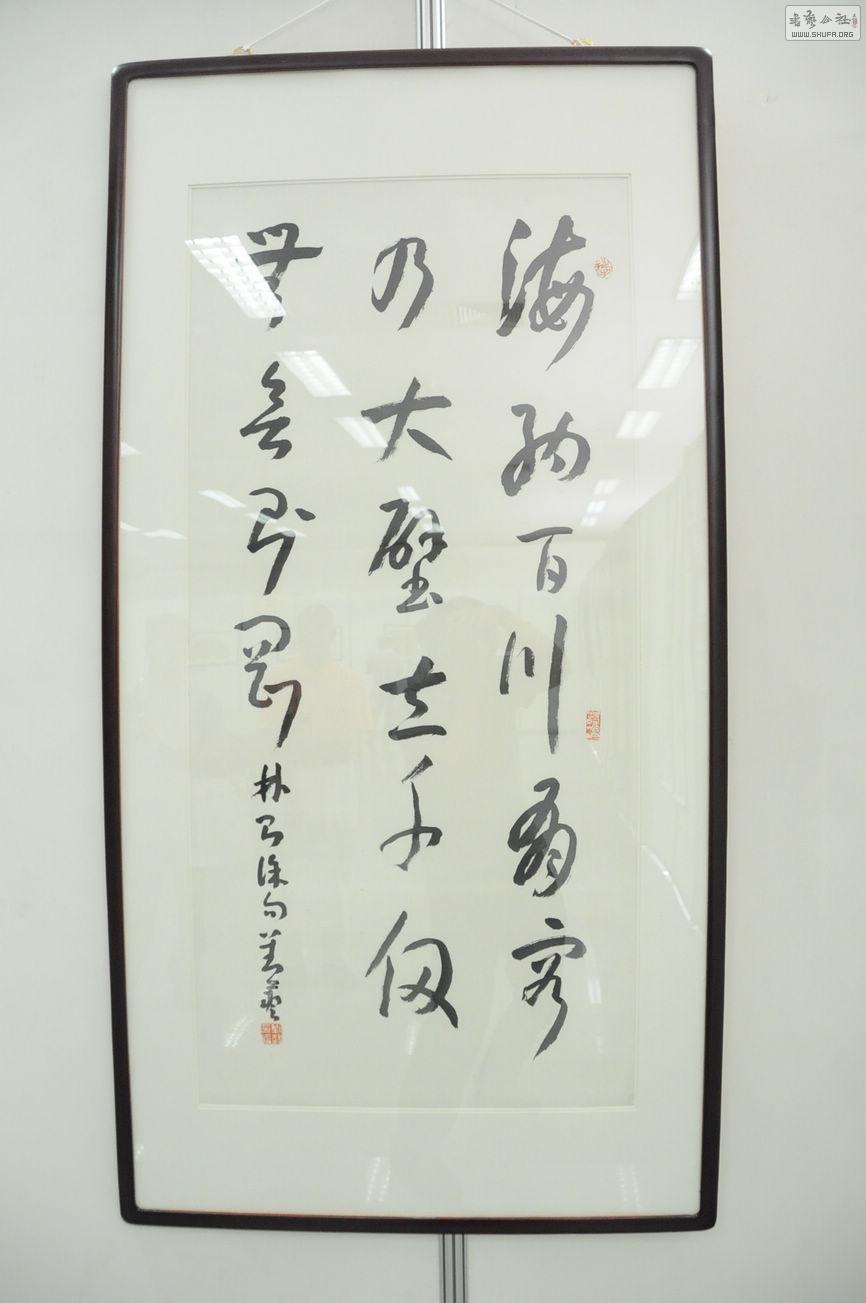 海納百川有容
乃大壁立千仞
無欲則剛 林則徐句
書藝公社
WWW.SHUFA.ORG